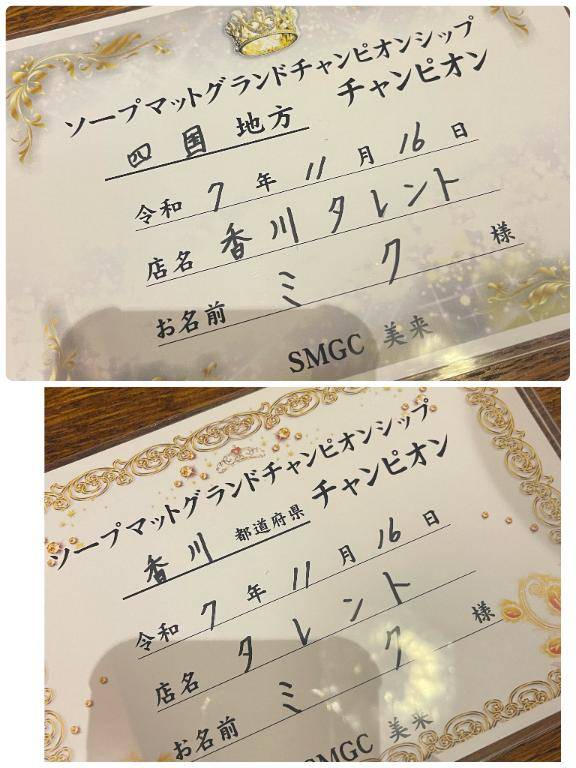 ソープマットグランドチャンピオンシップ
四国 地方 チャンピオン
令和 7 年 11 月 16 日
店名 香川タレント
お名前 ミク 様
SMGC 美来
ソープマットグランドチャンピオンシップ
香川 都道府県 チャンピオン
令和 7 年 11 月 16 日
店名 タレント
お名前 ミク 様
SMGC 美来